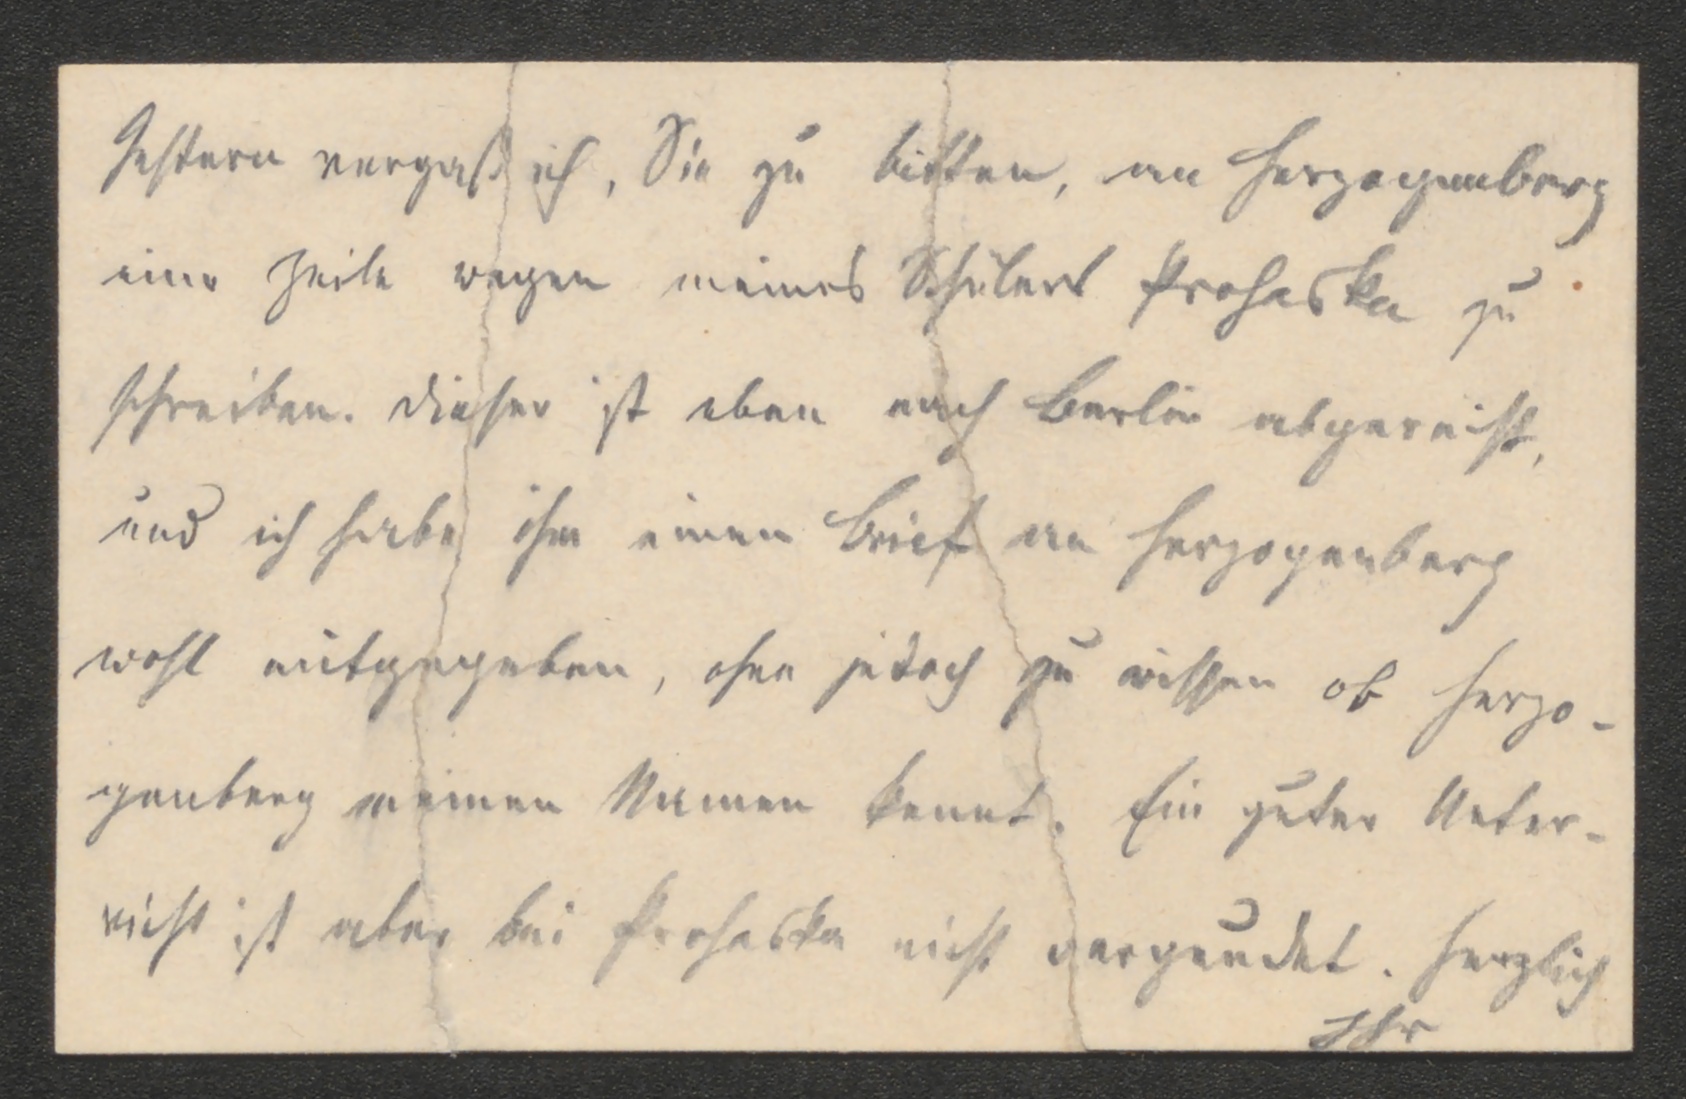 Gestern vergaß ich, Sie zu bitten, an Herzogenberg
eine Zeile wegen meines Schülers Prohaska zu
schreiben. Dieser ist eben nach Berlin abgereist,
und ich habe ihm einen Brief an Herzogenberg
wohl mitgegeben, ohne jedoch zu wissen ob Herzo-
genberg meinen Namen kennt. Ein guter Unter-
richt ist aber bei Prohaska nicht vergeudet. Herzlich
Ihr